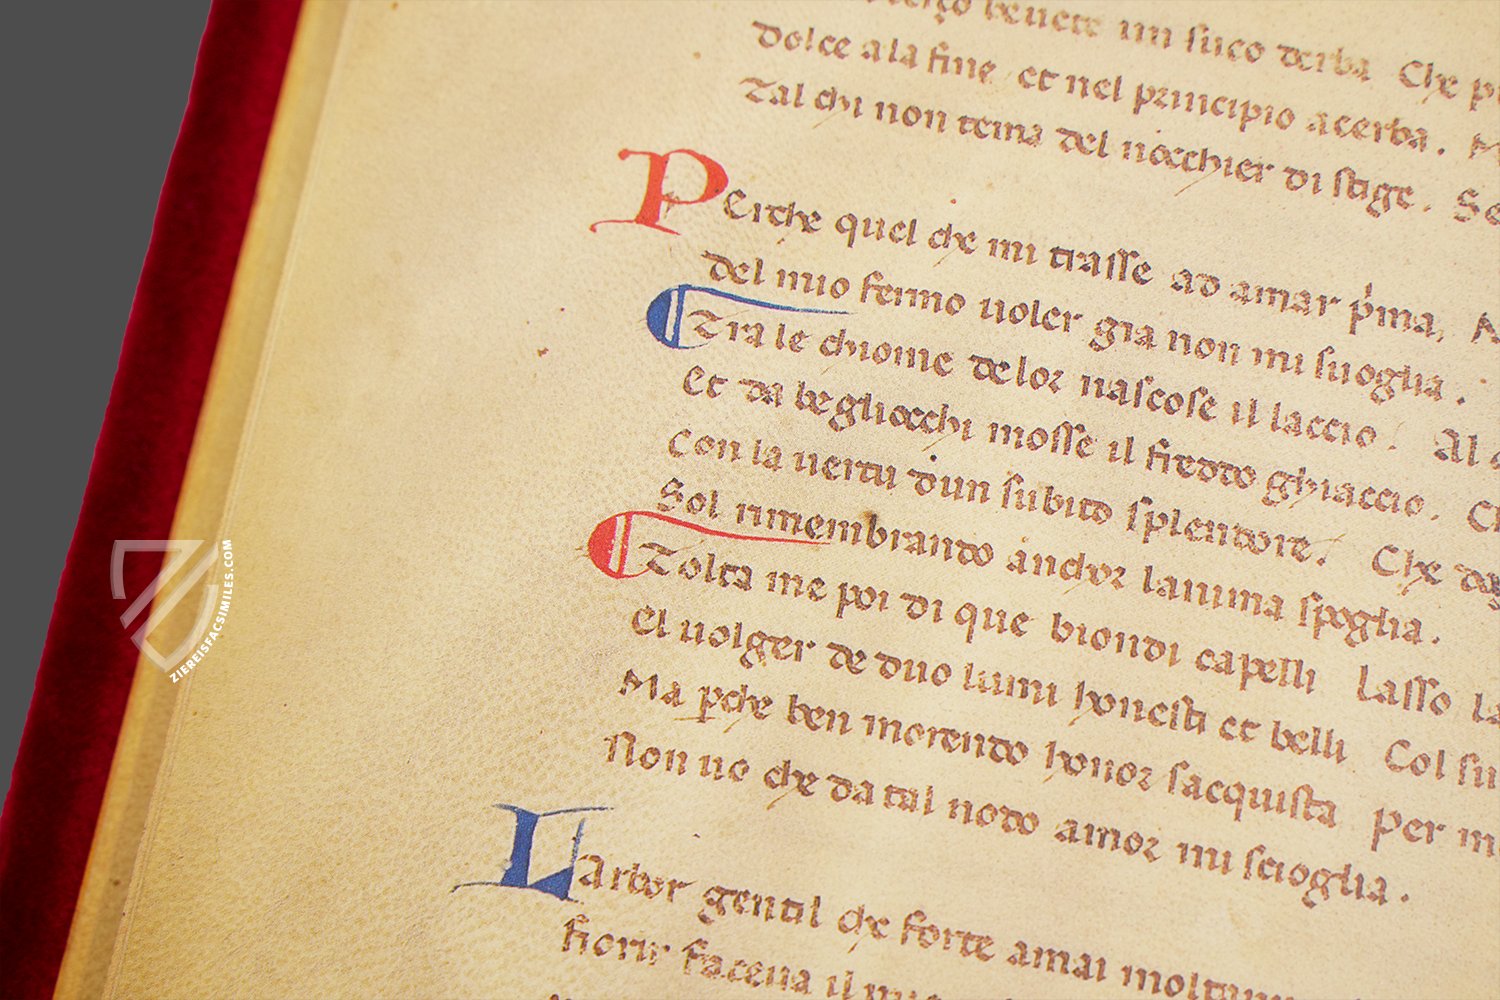 beuete un suco derba Che p
dolce a la fine et nel principio acerba. M
Tal chi non tema del nocchier di stige. Se
PErche quel che mi trasse ad amar pma, A
del mio fermo uoler gia non mi suoglia.
Tra le chiome de lor nascose il laccio. Al
Et da begliocchi mosse il freddo ghiaccio. C
Con la uertu dun subito splendore. Che dog
Sol rimembrando anchor lanima spoglia.
Tolta me poi di que biondi capelli Lasso la
El uolger de duo lumi honesti et belli Col su
Ma pche ben morendo honor sacquista Per m
Non uo che da tal nodo amor mi scioglia.
LArbor gentil che forte amai
fiorir faceua il
ZIEREISFACSIMILES.COM